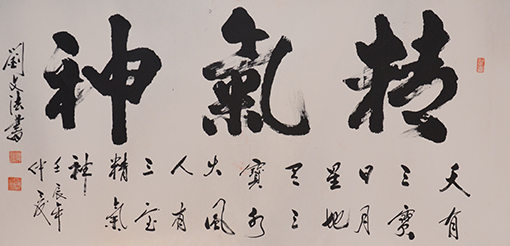 精氣神
天有
三寶
日月
星地
有三
寶水
火風
人有
三宝
精氣
神
壬辰年
仲夏
劉文法書